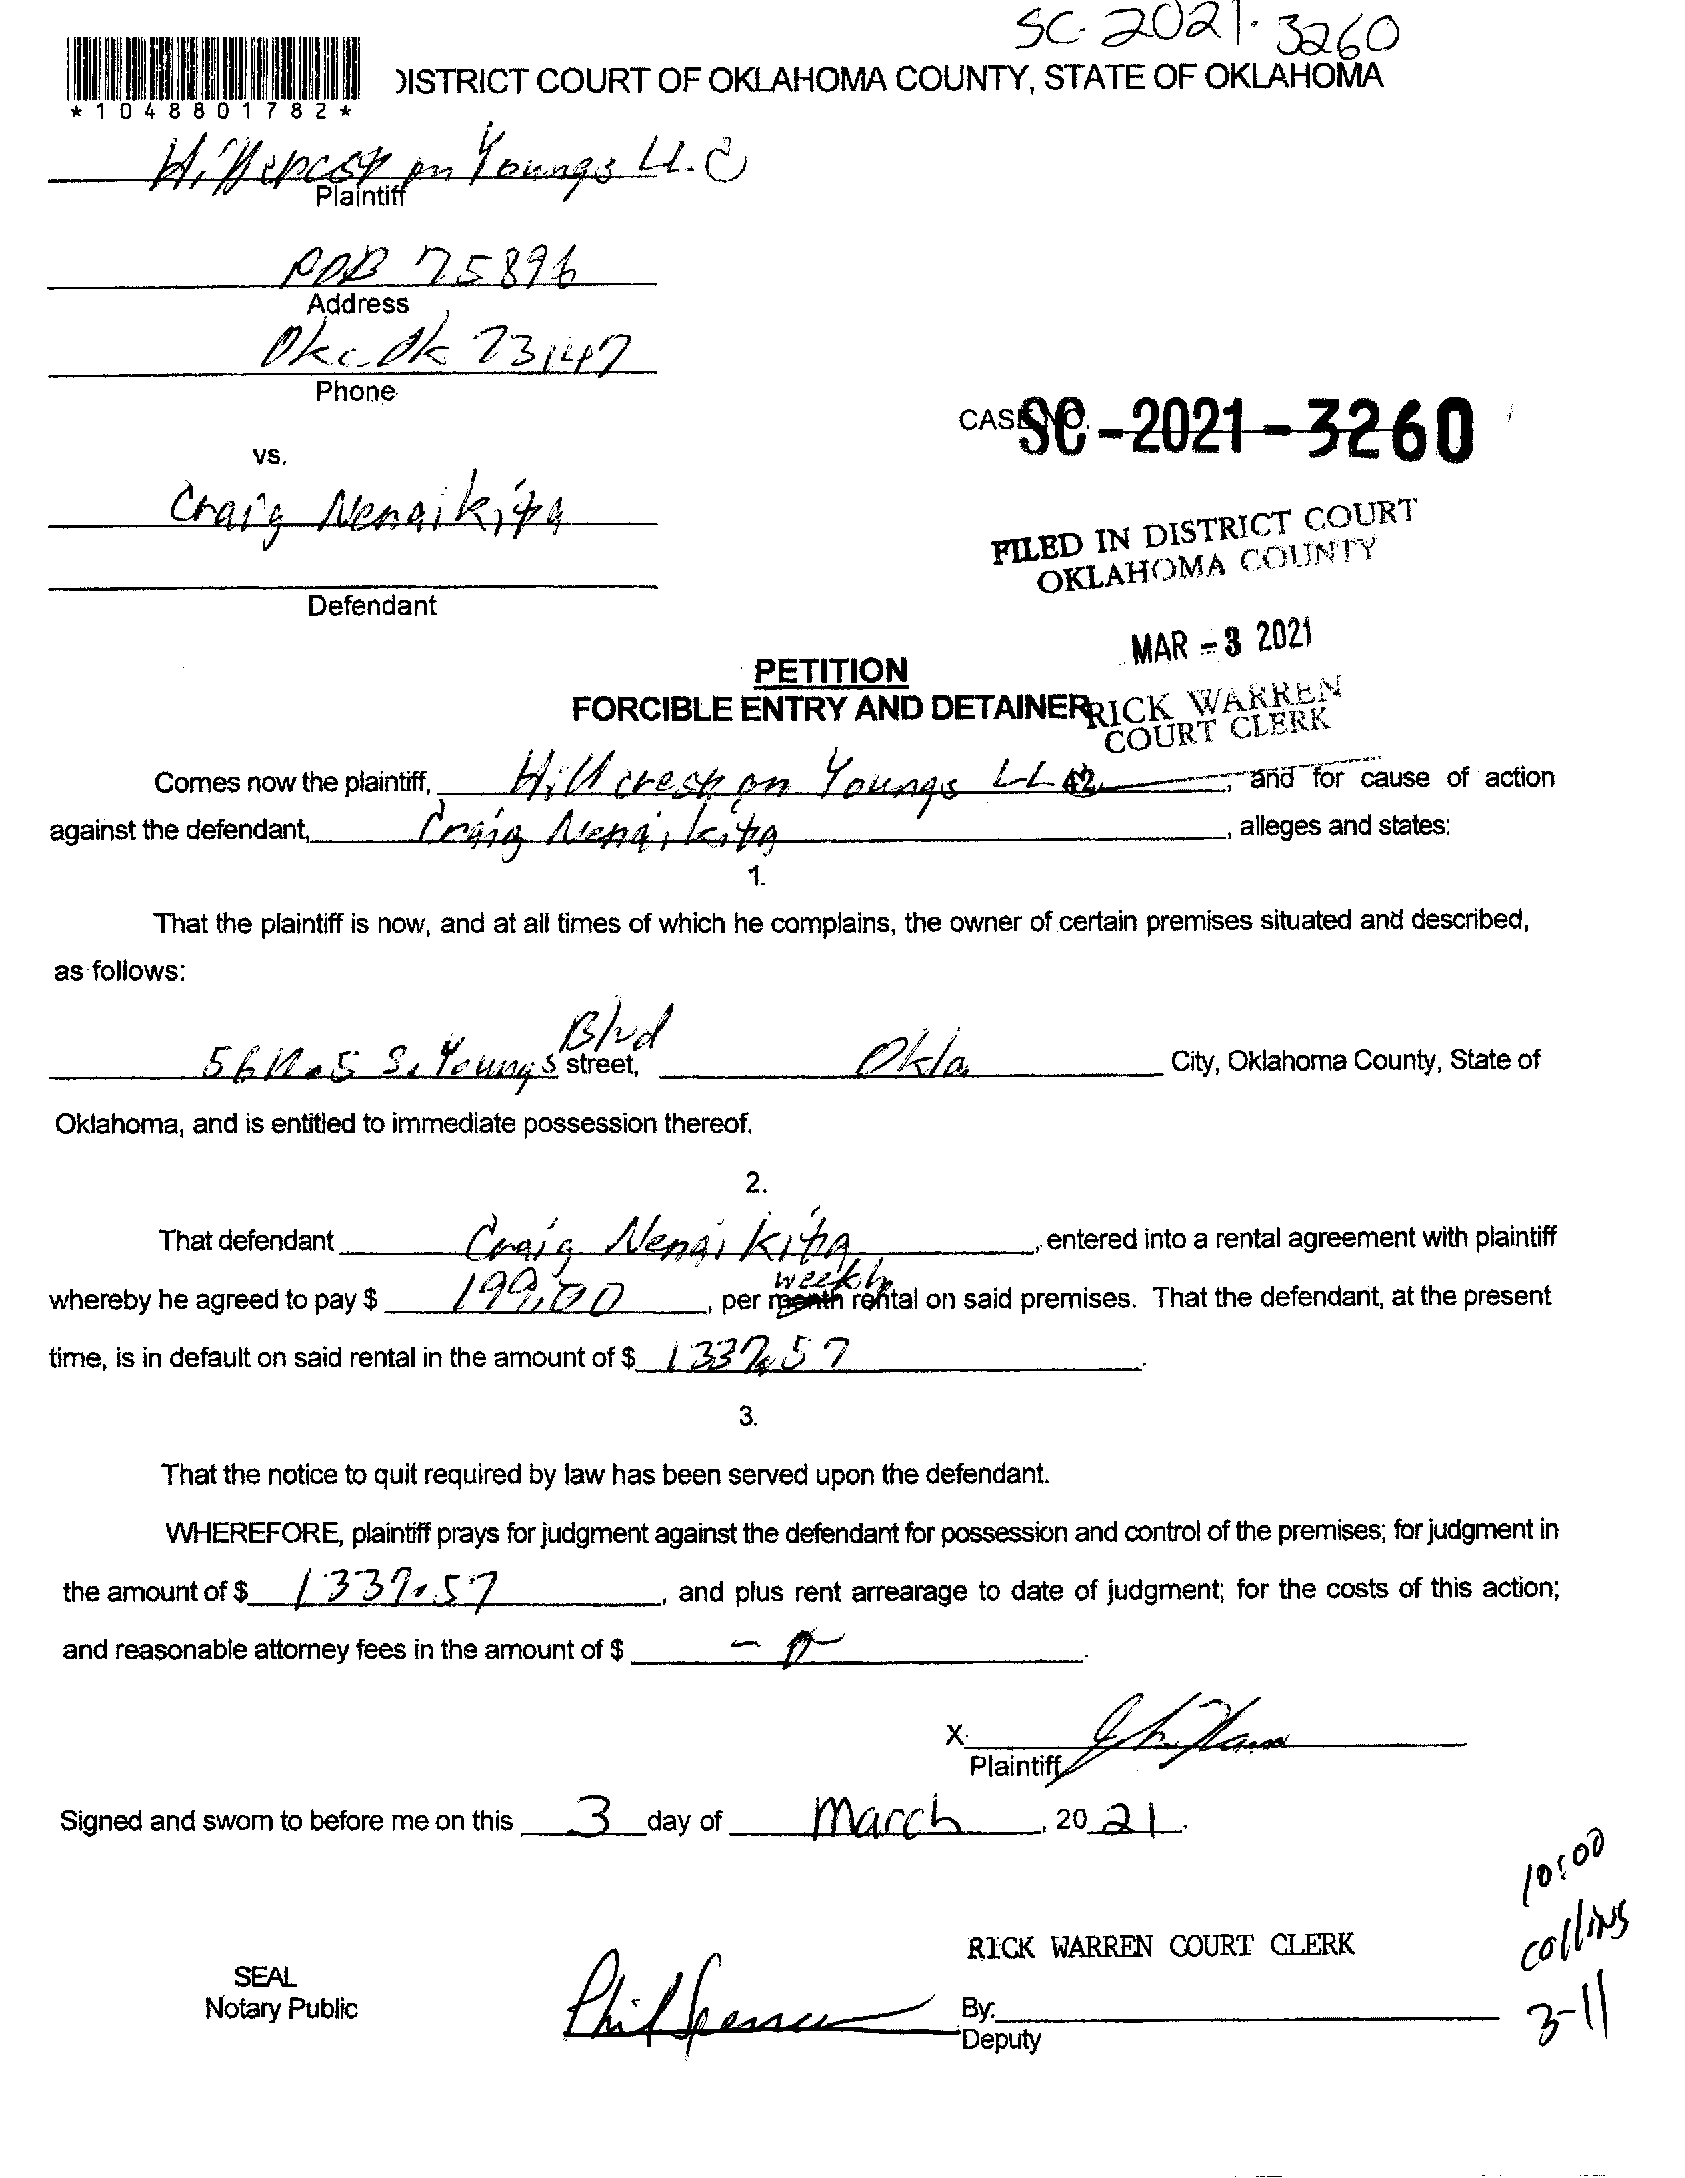 SC-2021-3260
DISTRICT COURT OF OKLAHOMA COUNTY, STATE OF OKLAHOMA
*1048801782*
Hillcrest on Youngs LLC
Plaintiff
POB 75896
Address
Okc Ok 73147
Phone
CASE NO. SC-2021-3260
vs.
Craig Nenaikita
FILED IN DISTRICT COURT
OKLAHOMA COUNTY
Defendant
MAR -3 2021
PETITION
FORCIBLE ENTRY AND DETAINER
RICK WARREN
COURT CLERK
Comes now the plaintiff, Hillcrest on Youngs LLC, and for cause of action
against the defendant, Craig Nenaikita, alleges and states:
1.
That the plaintiff is now, and at all times of which he complains, the owner of certain premises situated and described,
as follows:
Blvd
S. Youngs street, Okla City, Oklahoma County, State of
Oklahoma, and is entitled to immediate possession thereof.
2.
That defendant Craig Nenaikita, entered into a rental agreement with plaintiff
weekly
whereby he agreed to pay $ 199.00, per month rental on said premises. That the defendant, at the present
time, is in default on said rental in the amount of $ 1337.57.
3.
That the notice to quit required by law has been served upon the defendant.
WHEREFORE, plaintiff prays for judgment against the defendant for possession and control of the premises; for judgment in
the amount of $ 1337.57, and plus rent arrearage to date of judgment; for the costs of this action;
and reasonable attorney fees in the amount of $
X
Plaintiff
Signed and sworn to before me on this 3 day of March, 2021.
10:00
Collins
3-11
RICK WARREN COURT CLERK
SEAL
Notary Public
Phil Spencer
By:
Deputy